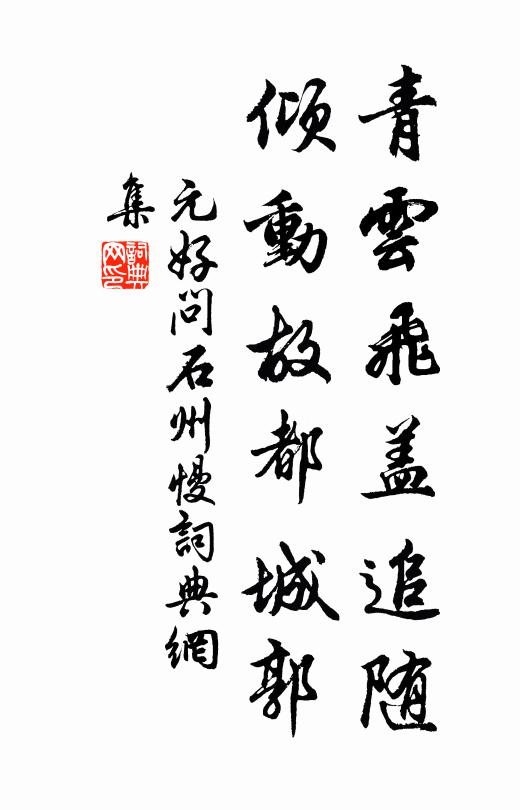 青雲飛盖追随
傾動故都城郭
元好问石州慢詞典網
集
詞典
网印